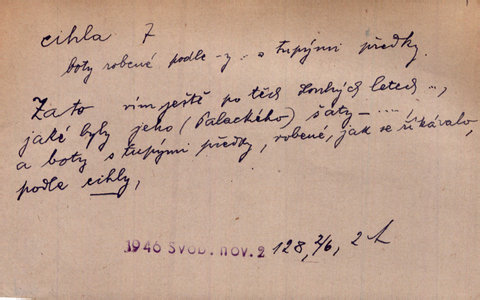 cihla 7
boty robené podle -y - s tupými předky.
Za to vím ještě po těch dlouhých letech ...,
jaké byly jeho (Palackého) šaty - ...
a boty s tupými předky, robené, jak se říkávalo,
podle cihly,
1946 SVOB. NOV. 2 128, 2/6, 2